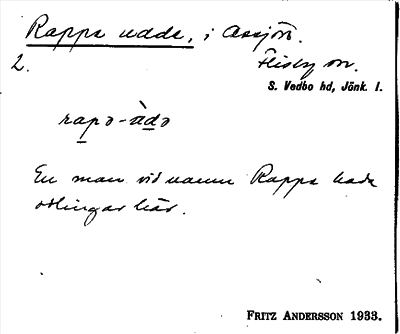 Rappe udde, i Assjön.
2. Flisby sn.
S. Vedbo hd, Jönk. l.
rapə-ùdə
En man vid namn Rappe hade
odlingar här.
FRITZ ANDERSSON 1933.